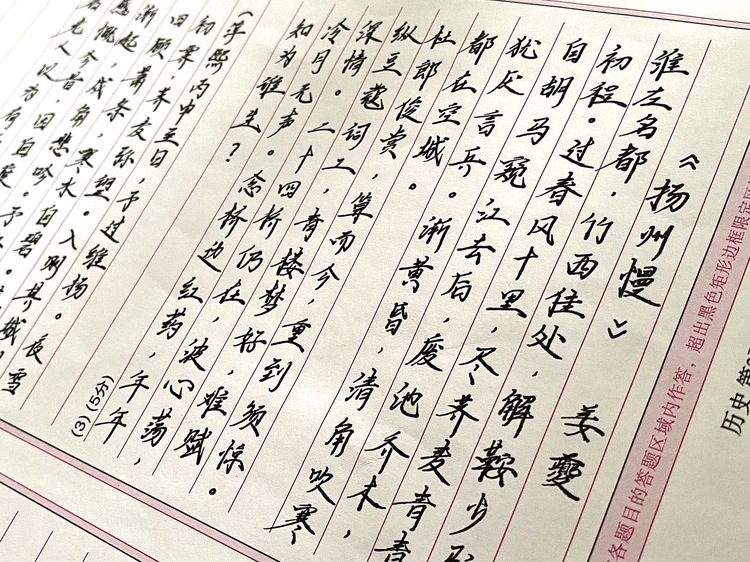 《扬州慢》
姜夔
谁左名都,竹西佳处,解鞍少
初程。过春风十里,尽荠麦青青
自胡马窥江去后,废池乔木,
犹厌言兵。渐黄昏,清角吹寒
都在空城。
杜郎俊赏,算而今,重到须惊。
纵豆蔻词工,青楼梦好,难赋
深情。二十四桥仍在,波心荡,
冷月无声。念桥边红药,年年
知为谁生?
(淳熙丙申至日,予过维扬。夜雪
初霁,荠麦弥望。入其城
四顾萧条,寒水自碧
渐起,戍角悲吟。予
感慨今昔,因自度
老人以为有
(3)(5分)
各题目的答题区域内作答,超出黑色矩形边框限定区
历史第